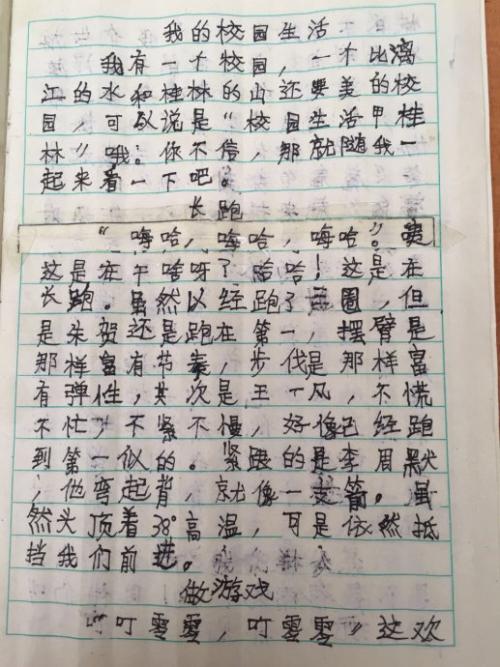 我的校园生活
我有一个校园，一个比漓
江的水和桂林的山还要美的校
园，可以说是“校园生活甲桂
林”哦。你不信，那就随我一
起来看一下吧。
长跑
“嗨哈，嗨哈，嗨哈”。
这是在干啥呀？哈哈！这是在
长跑。虽然以经跑了三圈，但
是朱贺还是跑在第一，摆臂是
那样富有节奏，步伐是那样富
有弹性，其次是王一风，不慌
不忙，不紧不慢，好像已经跑
到第一似的。紧跟的是李眉
，他弯起背，就像一支箭。虽
然头顶着38°高温，可是依然抵
挡我们前进。
做游戏
“叮零零，叮零零”这欢